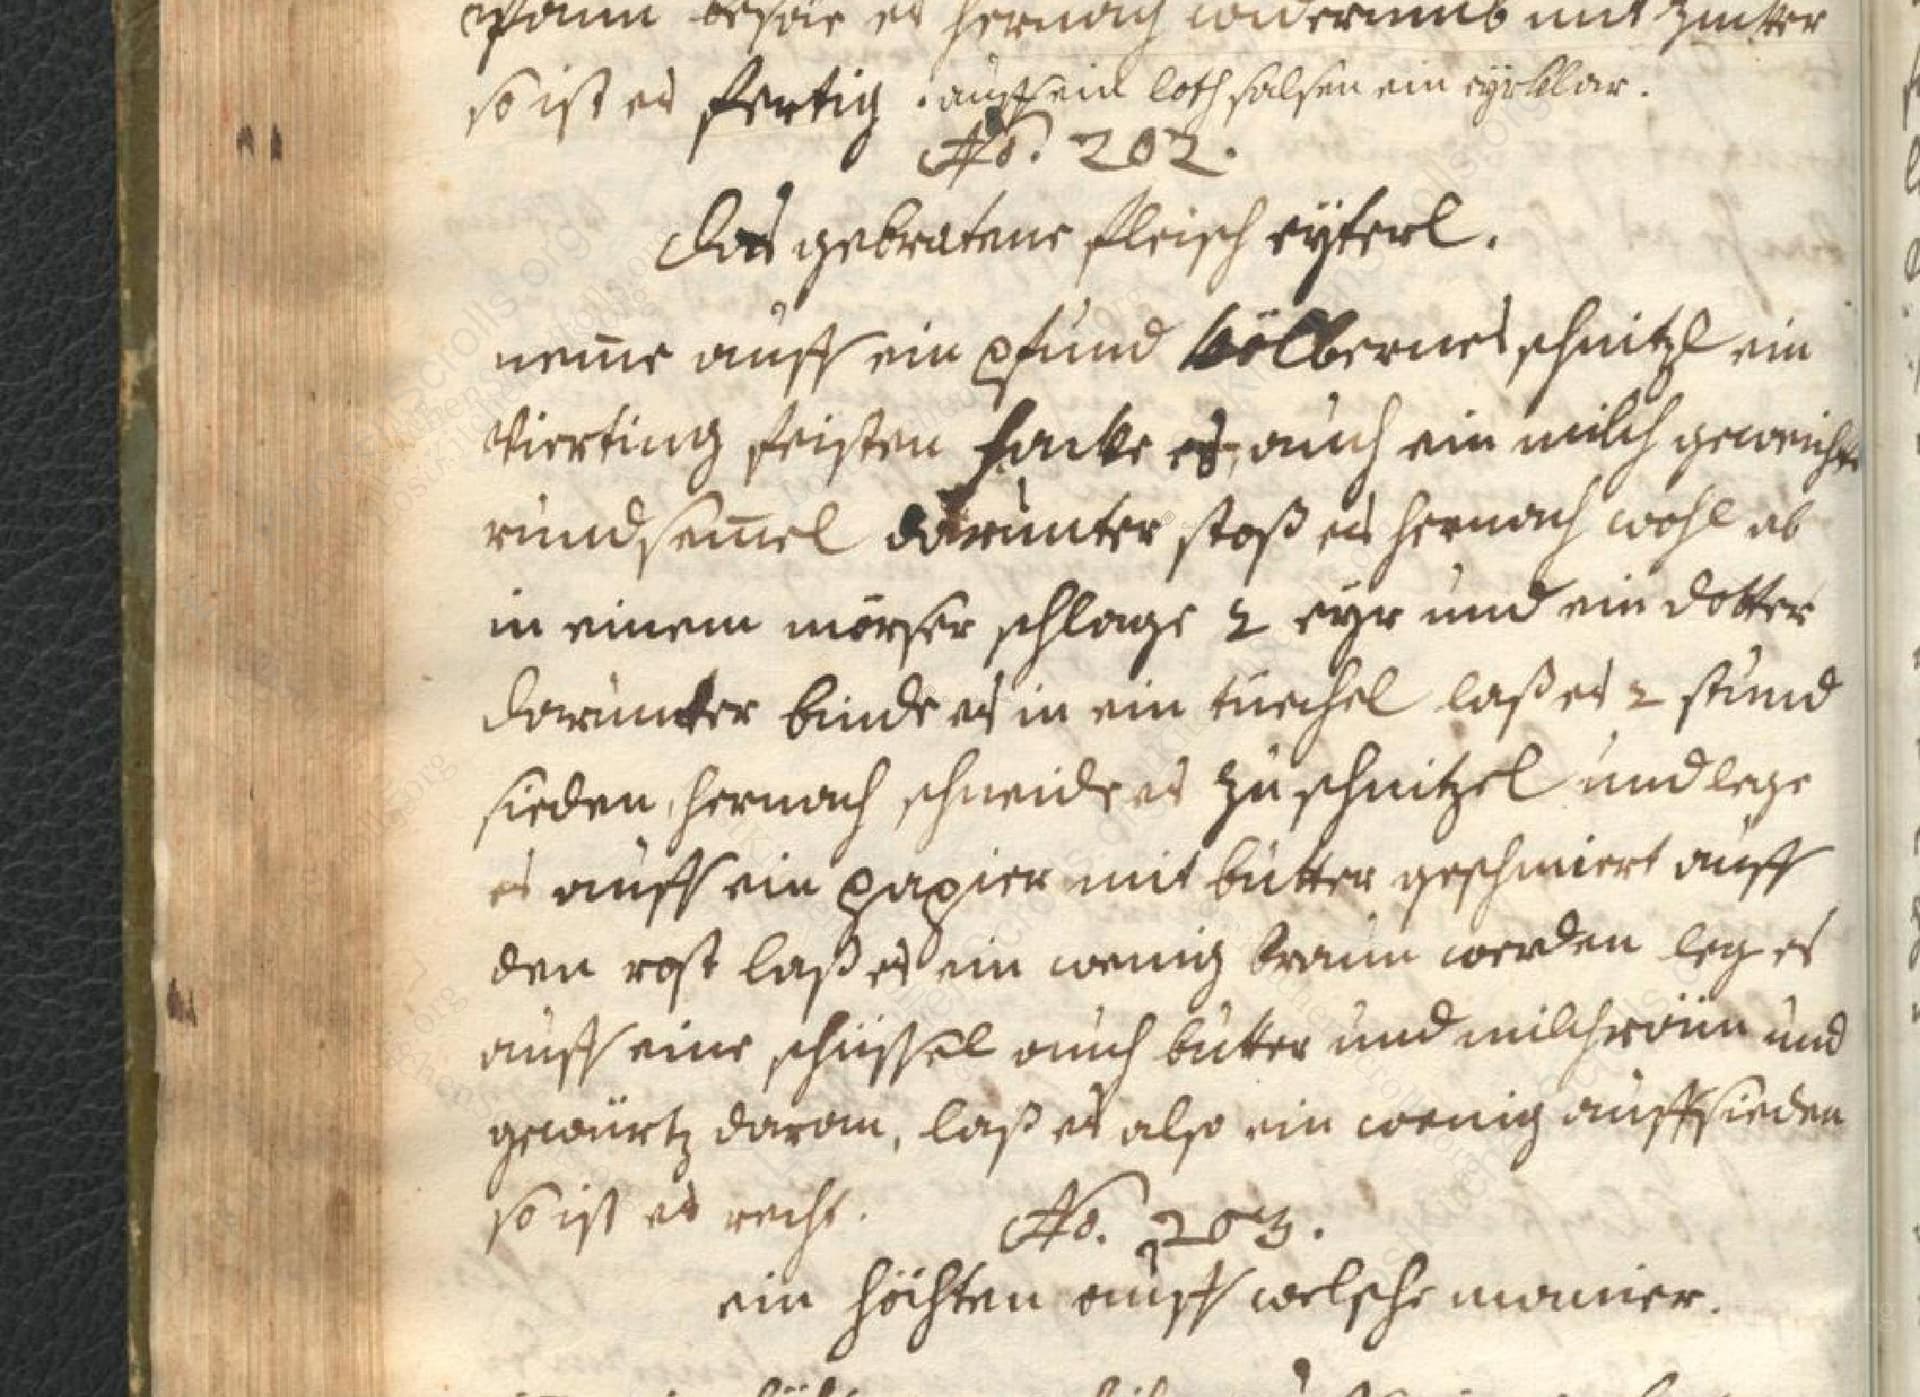 pfann besäe es hernach widerumb mit zucker
so ist es fertig. auff ein loth salsen ein eyrklar.
No. 202.
das gebratene fleisch eyterl.
nem̅e auff ein pfund kölbernes schnitzl ein
vierting feisten hacke es, auch ein milch geweichte
rundsem̅el darunter stoß es hernach wohl ab
in einem mörser schlage 2 eyr und ein dotter
darunter binde es in ein tüechel laß es 2 stund
sieden, hernach schneide es zu schnitzel und lege
es auff ein papier mit butter geschmiert auff
den rost laß es ein wenig braun werden leg es
auff eine schüssel auch butter und milchräum und
gewürtz daran, laß es also ein wenig auffsieden
so ist es recht.
No. 203.
ein höchten auff welsche manier.